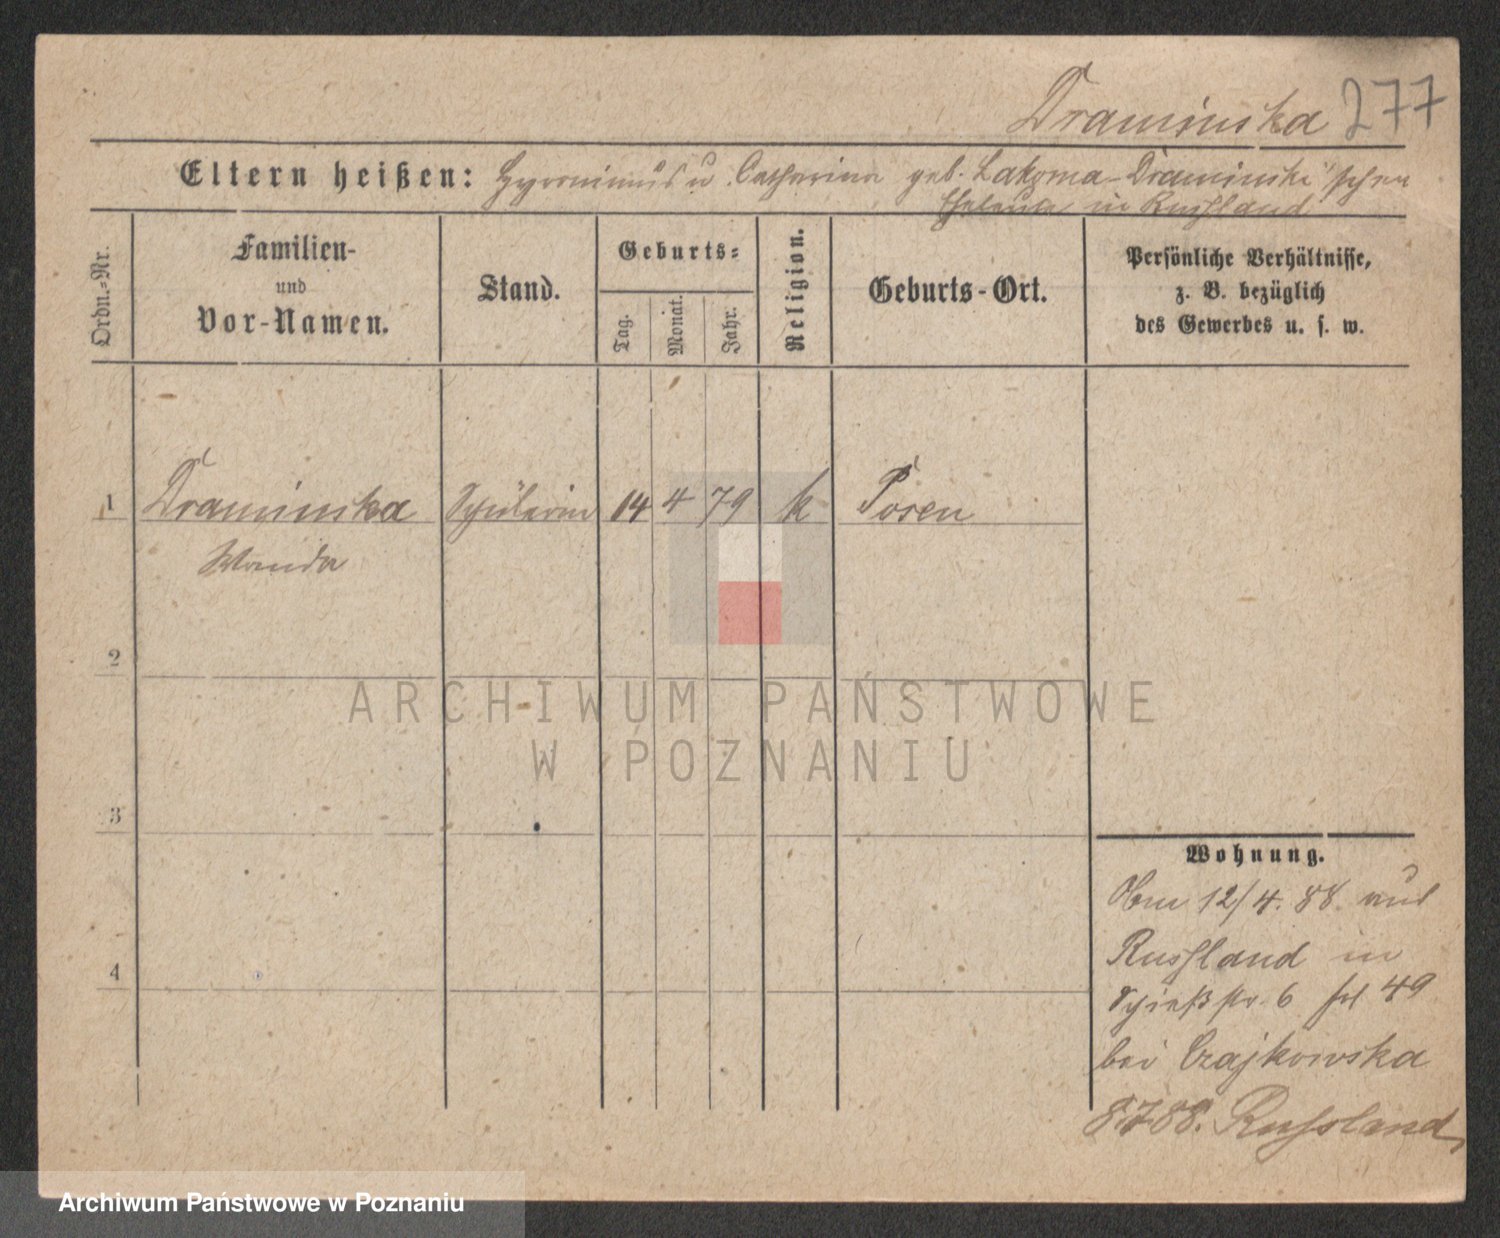 Draminska 277
Eltern heißen: Hyronimus u. Catharina geb. Lakoma-Draminski'schen
Eheleute in Russland
Ordn.-Nr.
Familien-
und
Vor-Namen.
Stand.
Geburts-
Tag.
Monat.
Jahr.
Religion.
Geburts-Ort.
Persönliche Verhältnisse,
z. B. bezüglich
des Gewerbes u. s. w.
1 Draminska Schülerin 14 4 79 k Posen
Wanda
2
3
4
Wohnung.
12/4. 88 aus
Russland in
Schießstr. 6 49
bei Czajkowska
88. Russland
ARCHIWUM PAŃSTWOWE
W POZNANIU
Archiwum Państwowe w Poznaniu